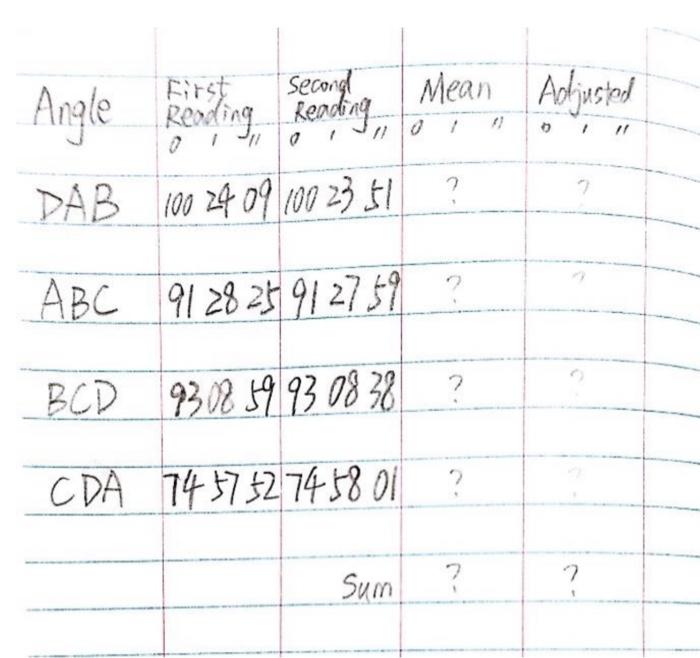 Angle First Reading Second Reading Mean Adjusted
° ' " ° ' " ° ' " ° ' "
DAB 100 24 09 100 23 51 ? ?
ABC 91 28 25 91 27 59 ? ?
BCD 93 08 59 93 08 38 ? ?
CDA 74 57 52 74 58 01 ? ?
Sum ? ?